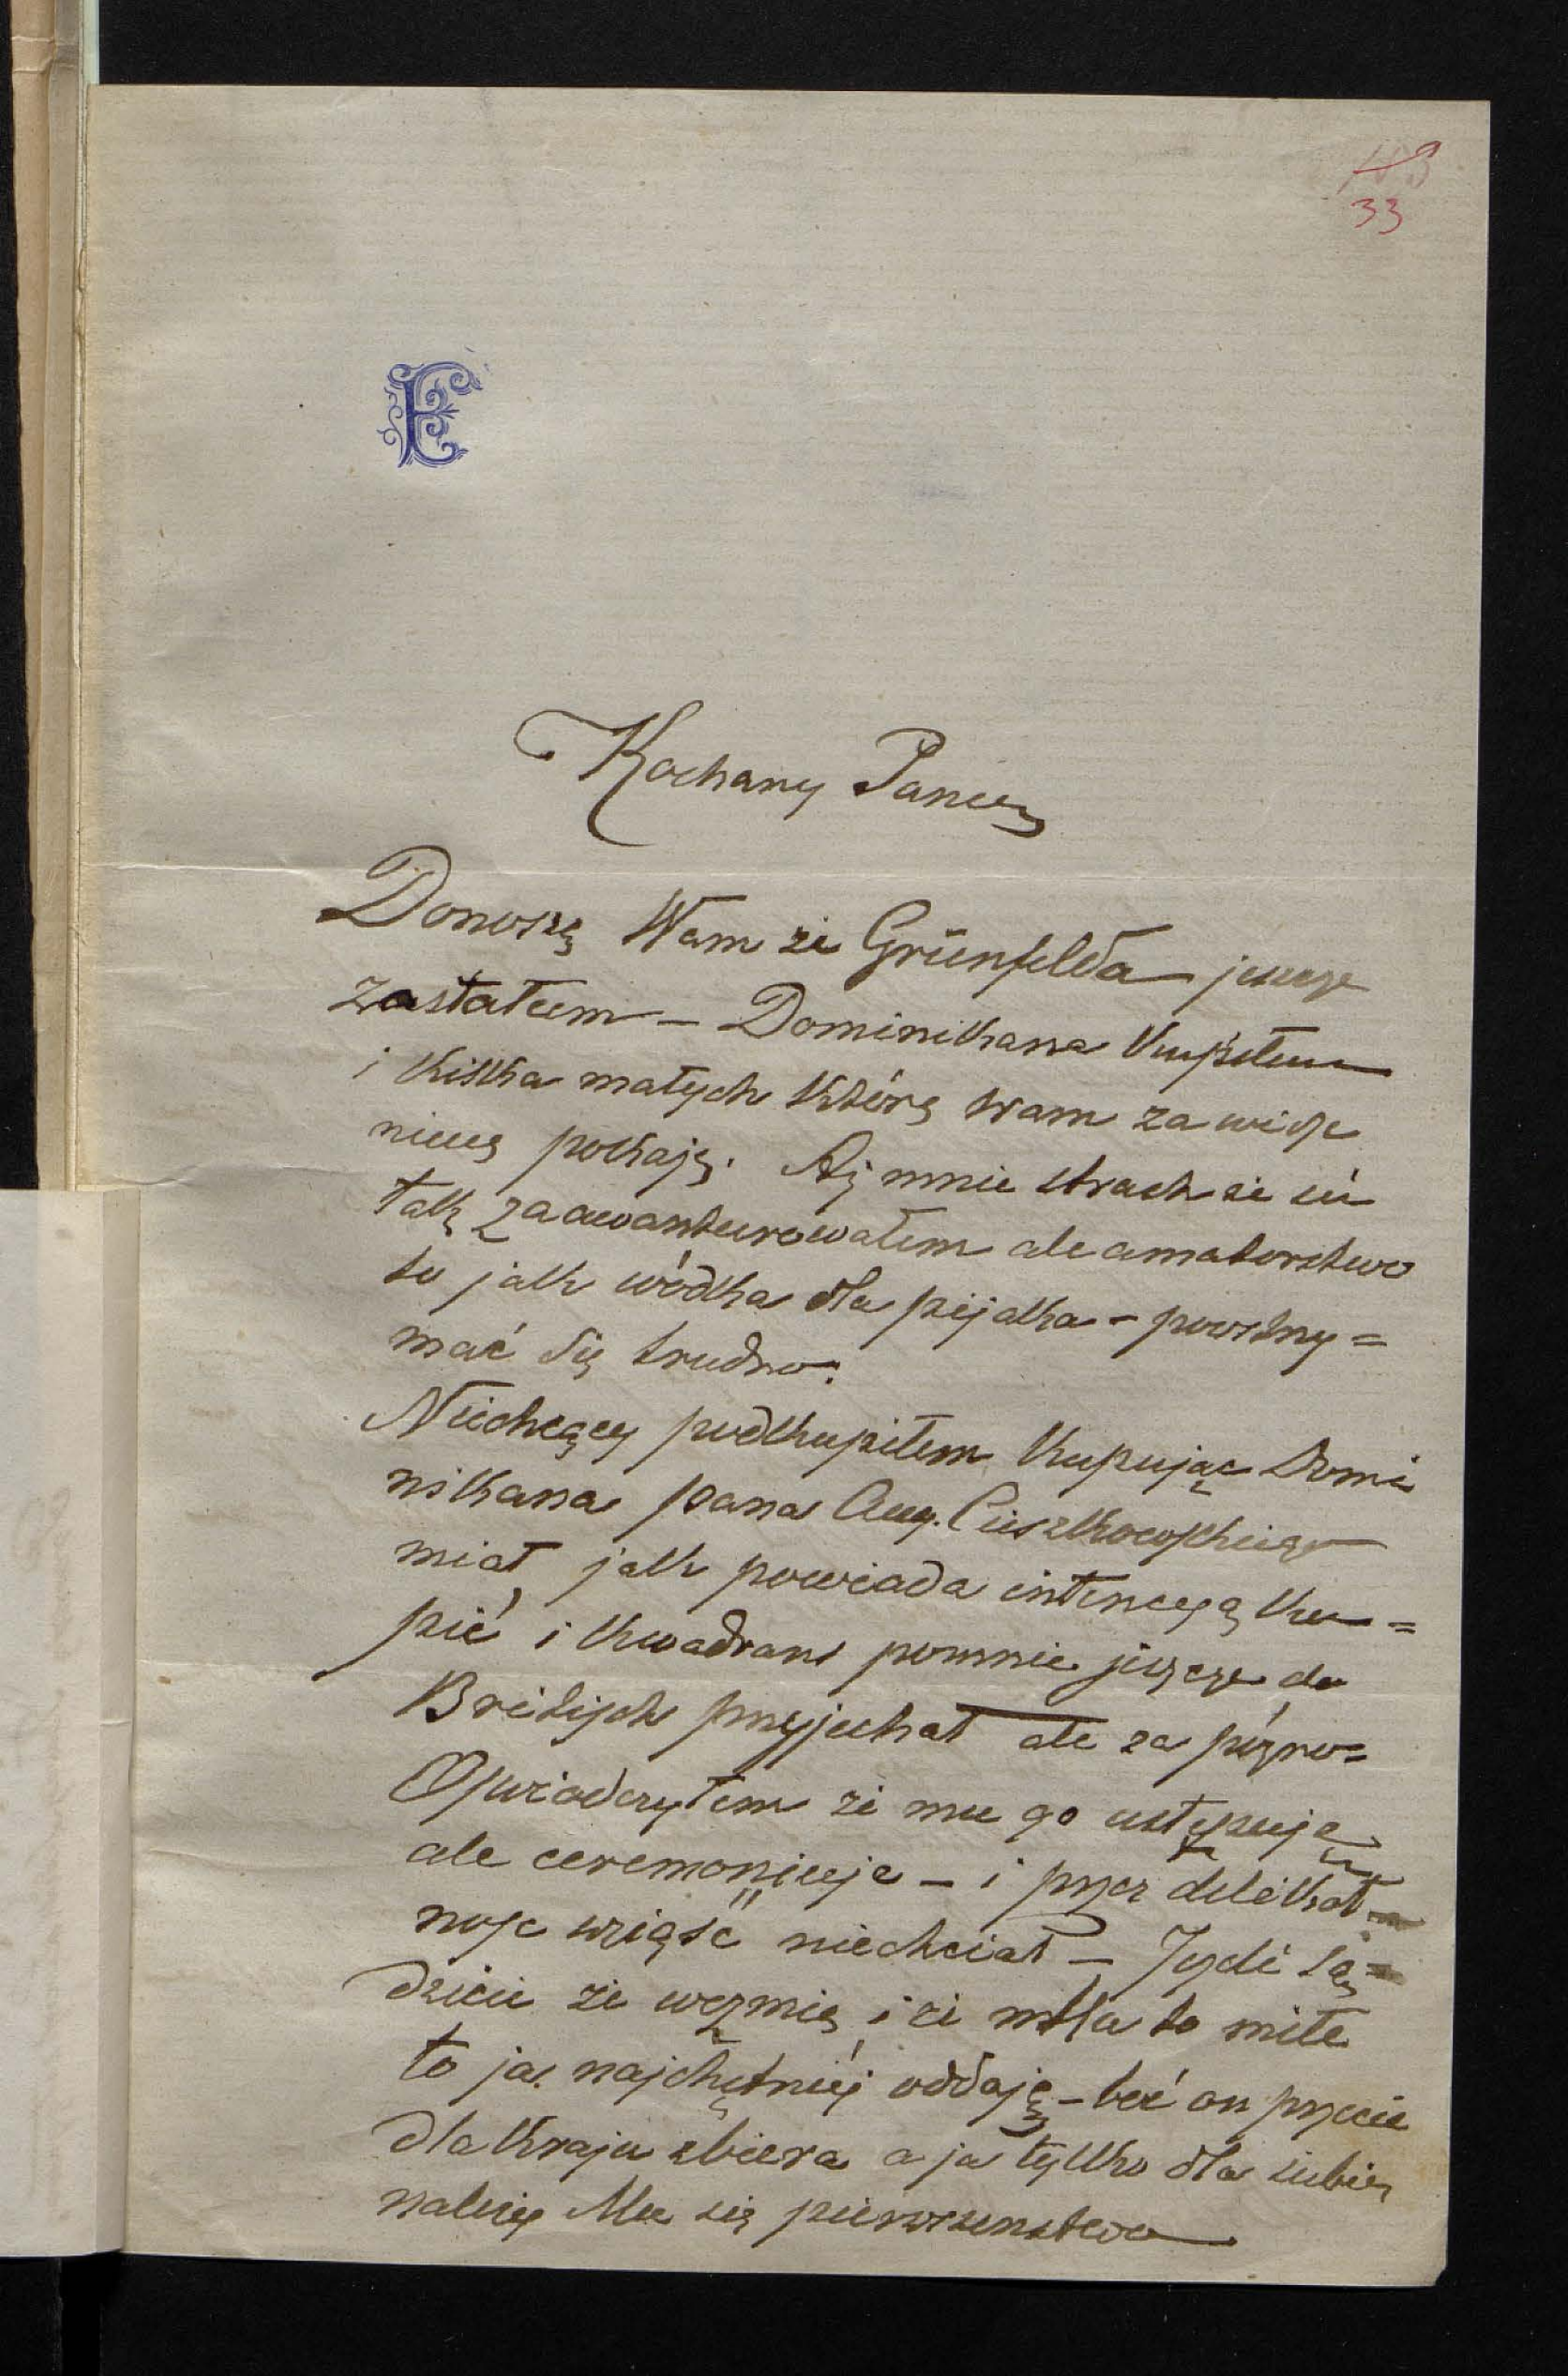 33
E
Kochany Panie
Donoszę Wam że Grünfelda jeszcze
zastałem – Dominikana kupiłem
i kilka małych które wam za widze
niem pokaję. Aż mnie strach że się
tak zaawanturowałem ale amatorstwo
to jak wódka dla pijaka – powstrzy=
mać się trudno.
Niechcący podkupiłem kupując Domi
nikana pana Aug. Cieszkowskiego
miał jak powiada intencyą ku=
pić i kwadrans pomnie jeszcze do
przyjechał ale za pózno=
Oświadczyłem że mu go ustępuję
ale ceremoniuje – i przez delikat=
nosc wziąść niechciał – Jezeli są=
dzicie że wezmie i że mu to miłe
to ja najchętniéj oddaję – bo on przecie
dla kraju zbiera a ja tylko dla siebie
należy Mu się pierwszenstwo